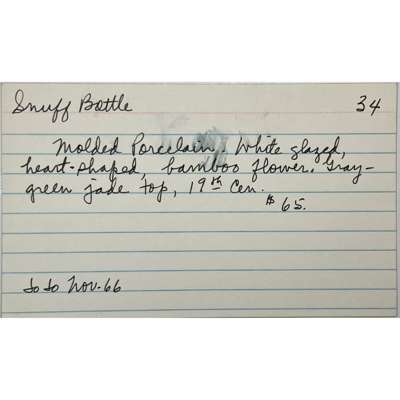 Snuff Bottle 34
Molded Porcelain. White glazed,
heart-shaped, bamboo flower. Gray-
green jade top, 19th Cen.
$65.
Nov. 66